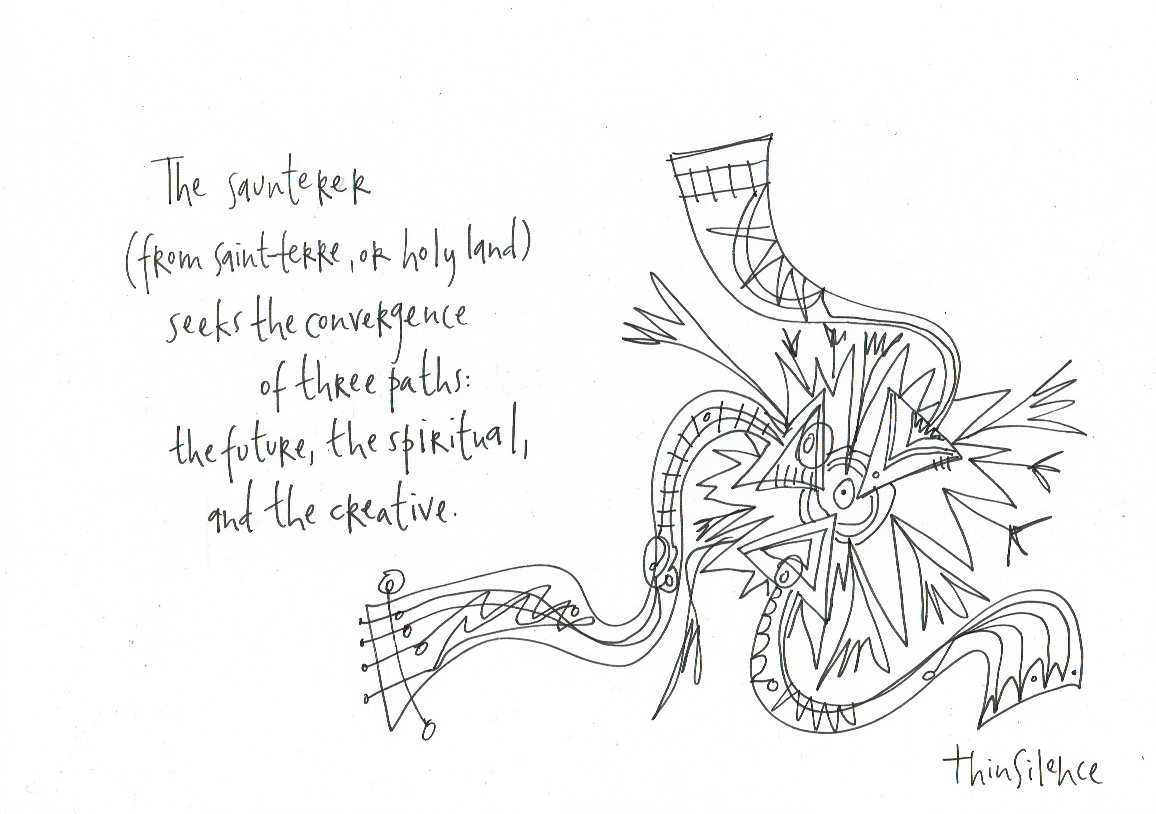 The saunterer
(from saint-terre, or holy land)
seeks the convergence
of three paths:
the future, the spiritual,
and the creative.
thinsilence